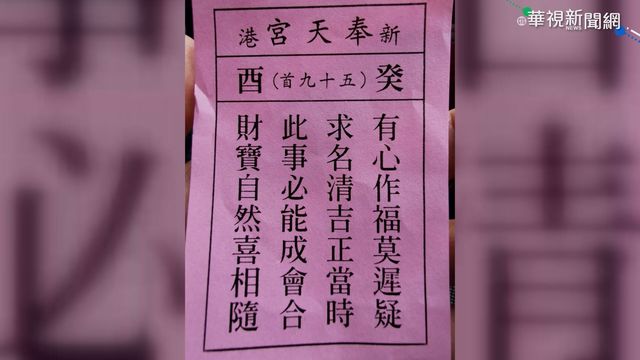 華視新聞網
NEWS
新港奉天宮
癸酉（首九十五）
有心作福莫遲疑
求名清吉正當時
此事必能成會合
財寶自然喜相隨